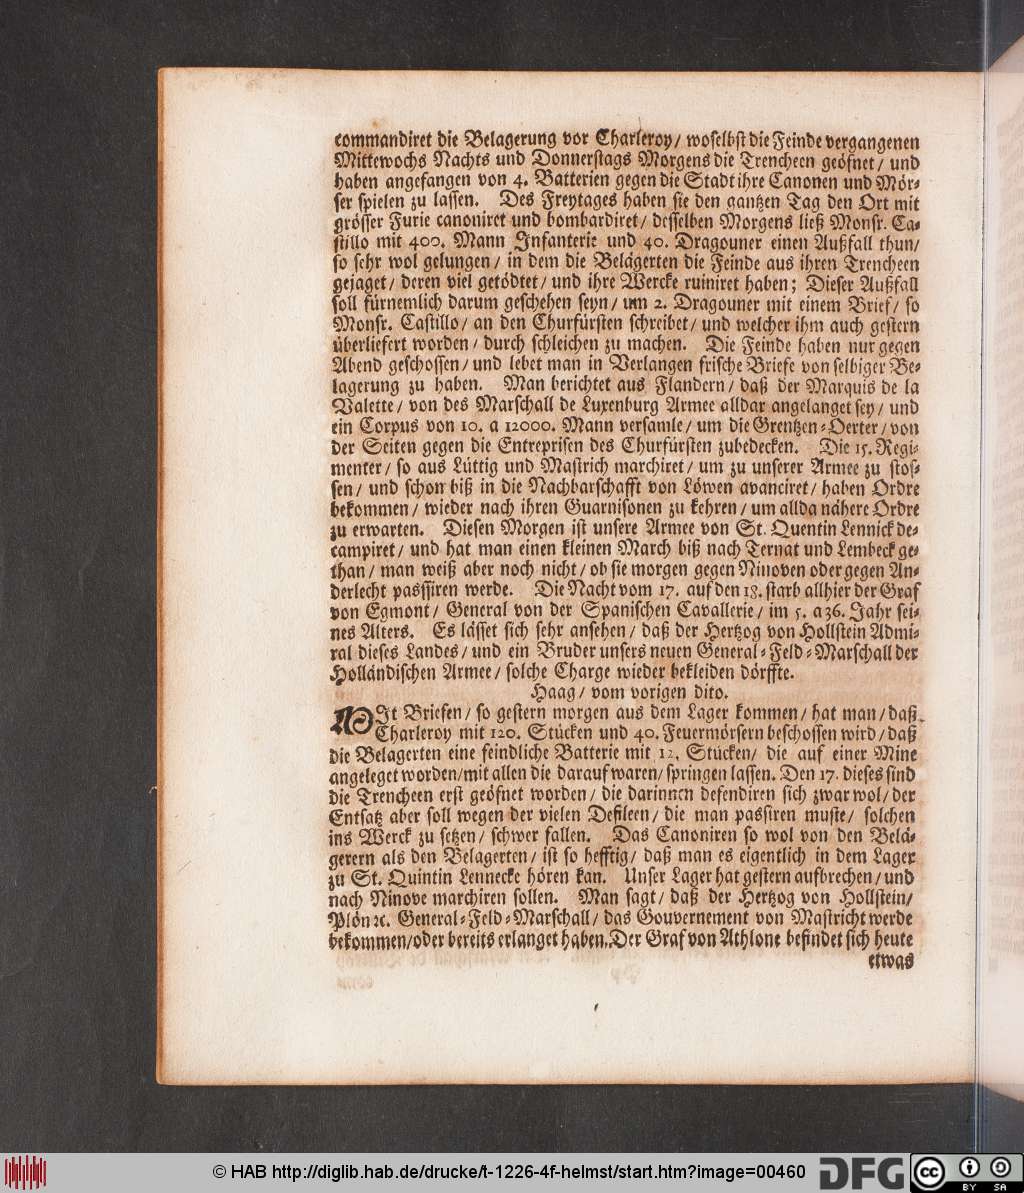 commandiret die Belagerung vor Charleroy/ woselbst die Feinde vergangenen
Mittewochs Nachts und Donnerstags Morgens die Trencheen geöfnet/ und
haben angefangen von 4. Batterien gegen die Stadt ihre Canonen und Mör-
ser spielen zu lassen. Des Freytages haben sie den gantzen Tag den Ort mit
grösser Furie canoniret und bombardiret/ desselben Morgens ließ Monsr. Ca-
stillo mit 400. Mann Infanterie und 40. Dragouner einen Außfall thun/
so sehr wol gelungen/ in dem die Belägerten die Feinde aus ihren Trencheen
gejaget/ deren viel getödtet/ und ihre Wercke ruiniret haben; Dieser Außfall
soll fürnemlich darum geschehen seyn/ um 2. Dragouner mit einem Brief/ so
Monsr. Castillo/ an den Churfürsten schreibet/ und welcher ihm auch gestern
überliefert worden/ durch schleichen zu machen. Die Feinde haben nur gegen
Abend geschossen/ und lebet man in Verlangen frische Briefe von selbiger Be-
lagerung zu haben. Man berichtet aus Flandern/ daß der Marquis de la
Valette/ von des Marschall de Luxenburg Armee alldar angelanget sey/ und
ein Corpus von 10. a 12000. Mann versamle/ um die Grentzen-Oerter/ von
der Seiten gegen die Entreprisen des Churfürsten zubedecken. Die 15. Regi-
menter/ so aus Lüttig und Mastrich marchiret/ um zu unserer Armee zu stos-
sen/ und schon biß in die Nachbarschafft von Löwen avanciret/ haben Ordre
bekommen/ wieder nach ihren Guarnisonen zu kehren/ um allda nähere Ordre
zu erwarten. Diesen Morgen ist unsere Armee von St. Quentin Lennick de-
campiret/ und hat man einen kleinen March biß nach Ternat und Lembeck ge-
than/ man weiß aber noch nicht/ ob sie morgen gegen Ninoven oder gegen An-
derlecht passiren werde. Die Nacht vom 17. auf den 18. starb allhier der Graf
von Egmont/ General von der Spanischen Cavallerie/ im 5. a 36. Jahr sei-
nes Alters. Es lässet sich sehr ansehen/ daß der Hertzog von Hollstein Admi-
ral dieses Landes/ und ein Bruder unsers neuen General-Feld-Marschall der
Holländischen Armee/ solche Charge wieder bekleiden dörffte.
Haag/ vom vorigen dito.
MIt Briefen/ so gestern morgen aus dem Lager kommen/ hat man/ daß
Charleroy mit 120. Stücken und 40. Feuermörsern beschossen wird/ daß
die Belagerten eine feindliche Batterie mit 12. Stücken/ die auf einer Mine
angeleget worden/ mit allen die darauf waren/ springen lassen. Den 17. dieses sind
die Trencheen erst geöfnet worden/ die darinnen defendiren sich zwar wol/ der
Entsatz aber soll wegen der vielen Defileen/ die man passiren muste/ solchen
ins Werck zu setzen/ schwer fallen. Das Canoniren so wol von den Belä-
gerern als den Belagerten/ ist so hefftig/ daß man es eigentlich in dem Lager
zu St. Quintin Lennecke hören kan. Unser Lager hat gestern aufbrechen/ und
nach Ninove marchiren sollen. Man sagt/ daß der Hertzog von Hollstein/
Plön ꝛc. General-Feld-Marschall/ das Gouvernement von Mastricht werde
bekommen/ oder bereits erlanget haben. Der Graf von Athlone befindet sich heute
etwas
© HAB http://diglib.hab.de/drucke/t-1226-4f-helmst/start.htm?image=00460
DFG
cc BY SA